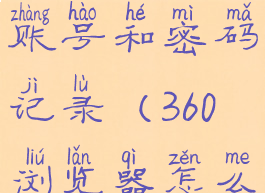 zhàng hào hé mì mǎ
账号和密码
jì lù
记录（360
liú lǎn qì zěn me
浏览器怎么